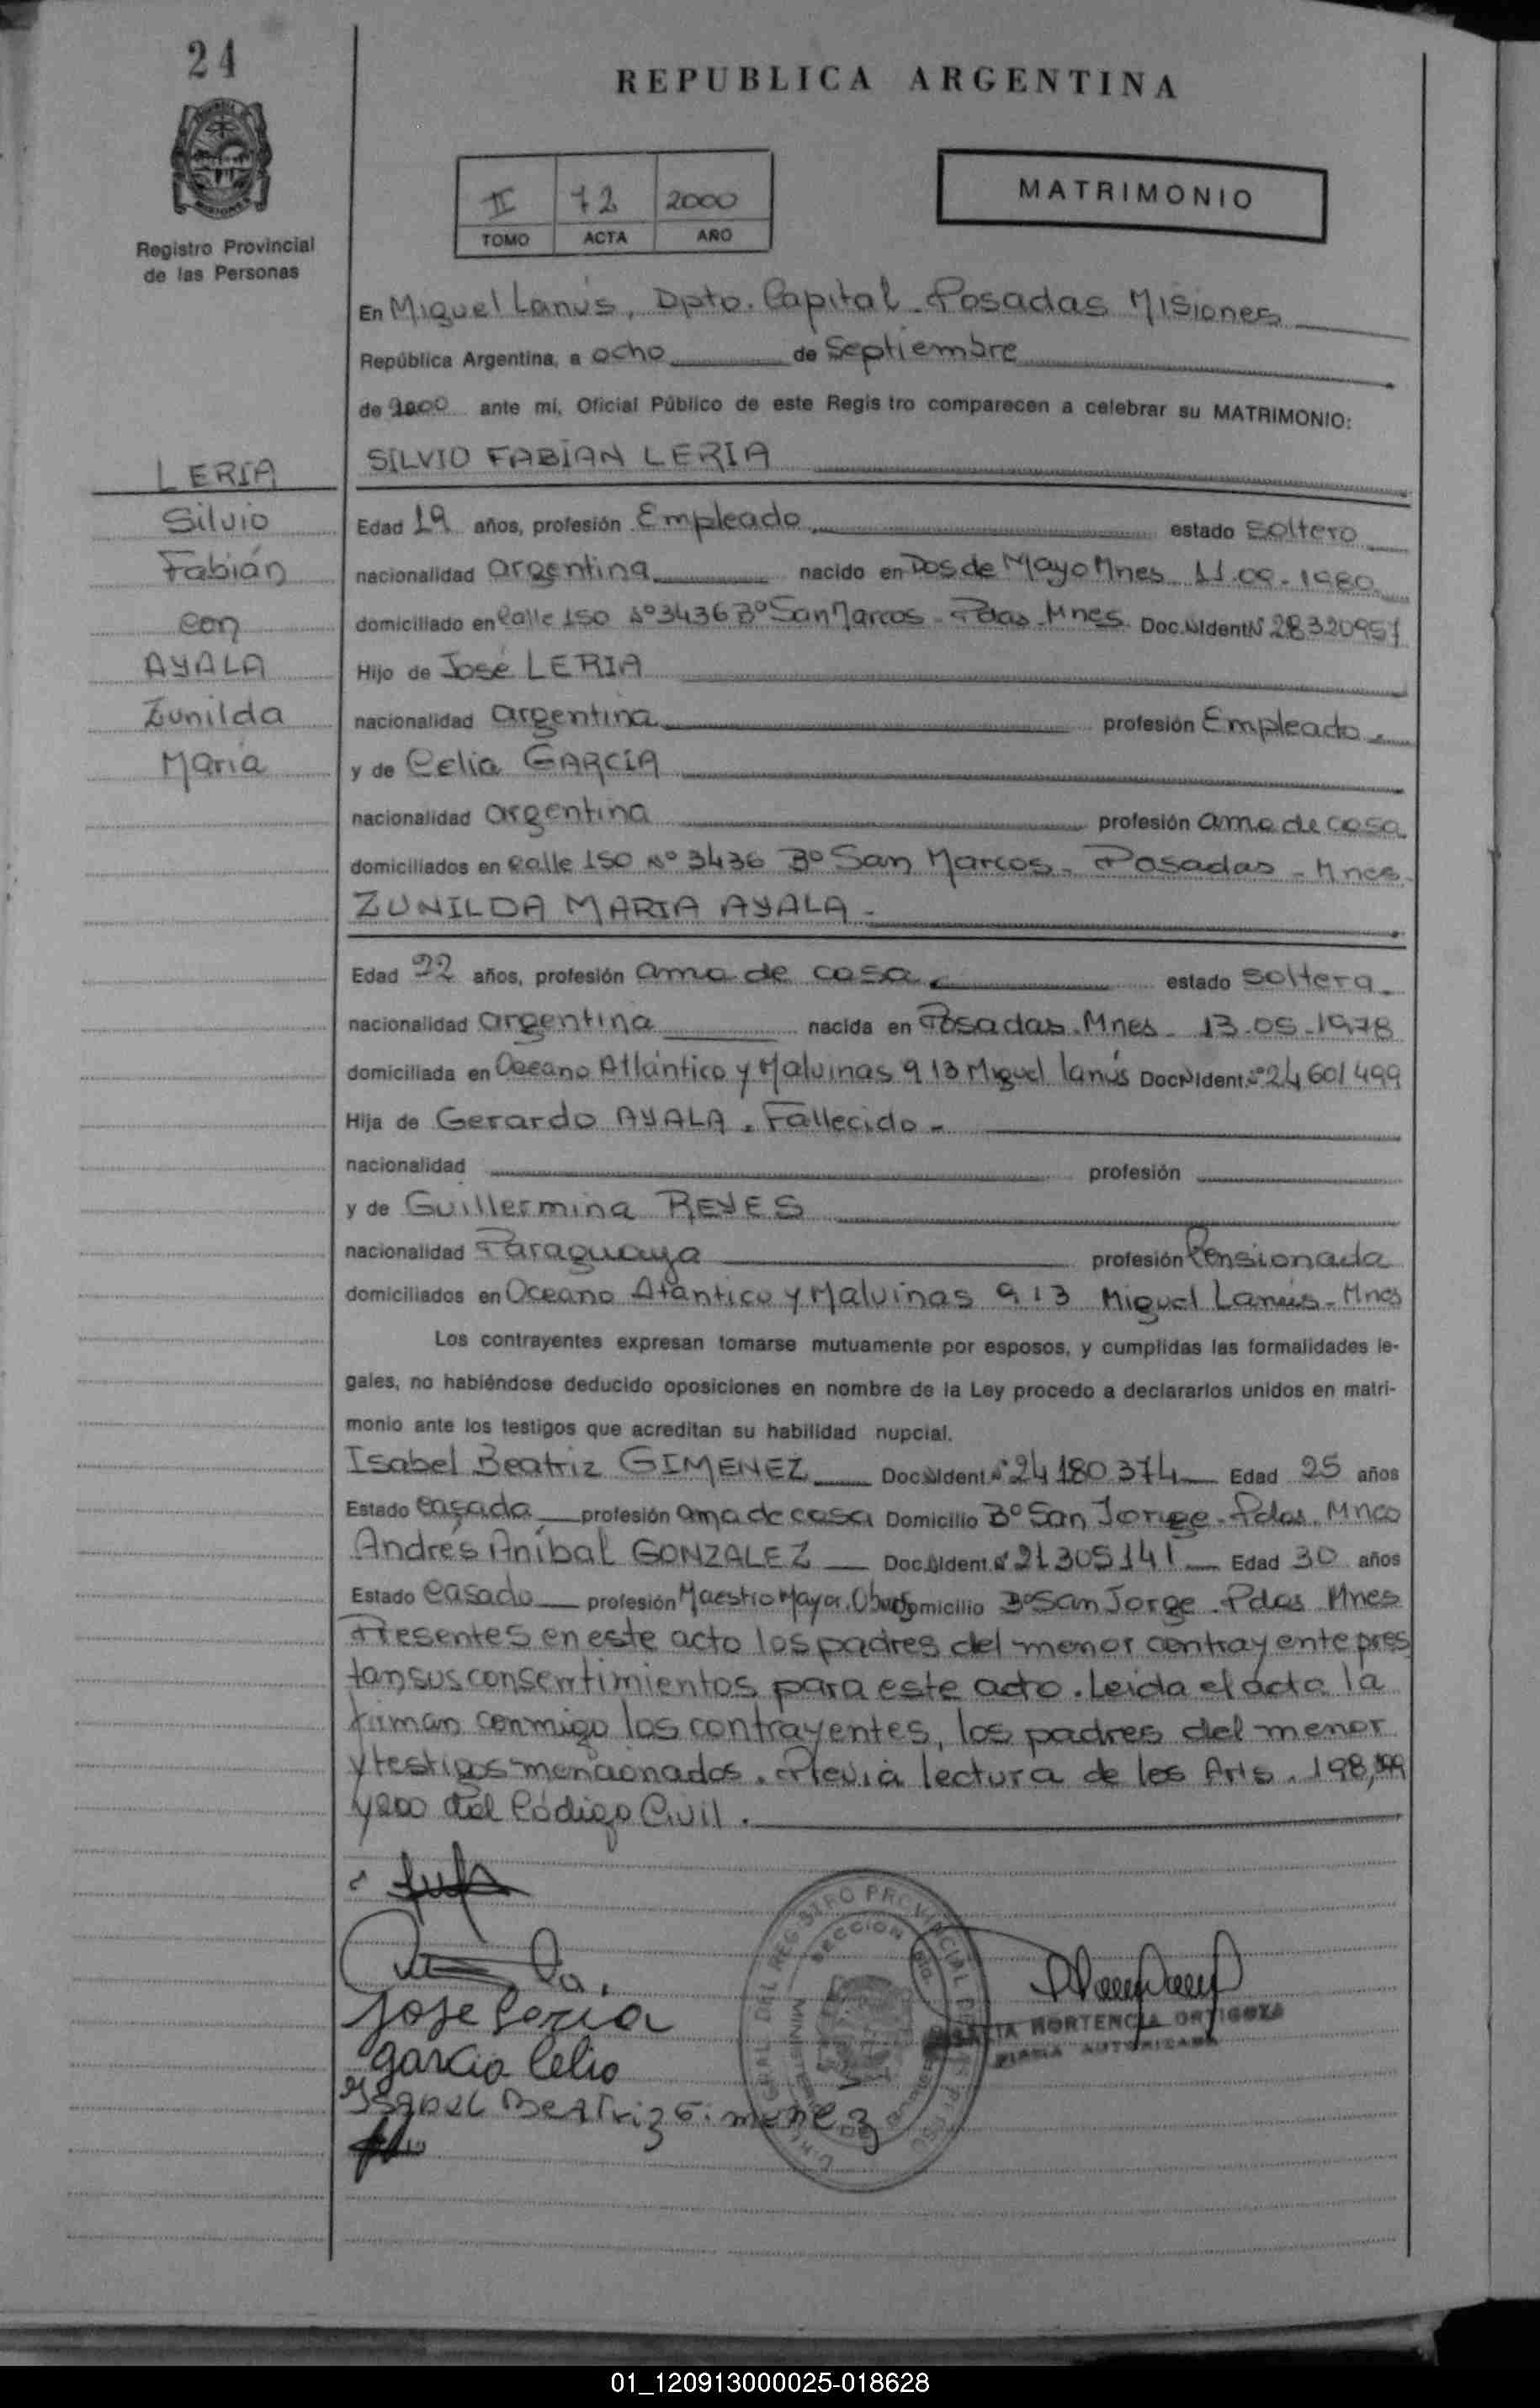 24
REPUBLICA ARGENTINA
II 72 2000
TOMO ACTA AÑO
MATRIMONIO
Registro Provincial
de las Personas
En Miguel Lanús, Dpto. Capital - Posadas Misiones
República Argentina, a ocho de Septiembre
de 2000 ante mí, Oficial Público de este Regis tro comparecen a celebrar su MATRIMONIO:
LERIA
Silvio
Fabián
con
AYALA
Zunilda
Maria
SILVIO FABIAN LERIA
Edad 19 años, profesión Empleado estado soltero
nacionalidad argentina nacido en Dos de Mayo Mnes 11.09.1980
domiciliado en Calle 150 Nº 3436 Bº San Marcos - Pdas Mnes. Doc.NIdentNº 28320951
Hijo de José LERIA
nacionalidad argentina profesión Empleado.
y de Celia GARCIA
nacionalidad argentina profesión ama de casa
domiciliados en calle 150 Nº 3436 Bº San Marcos - Posadas - Mnes.
ZUNILDA MARIA AYALA -
Edad 22 años, profesión ama de casa estado soltera.
nacionalidad argentina nacida en Posadas. Mnes - 13.05.1978
domiciliada en Oceano Atlántico y Malvinas 913 Miguel lanús DocNIdent.Nº 24601499
Hija de Gerardo AYALA. Fallecido -
nacionalidad profesión
y de Guillermina REYES
nacionalidad Paraguaya profesión Pensionada
domiciliados en Oceano Atantico y Malvinas 913 Miguel Lanús - Mnes
Los contrayentes expresan tomarse mutuamente por esposos, y cumplidas las formalidades le-
gales, no habiéndose deducido oposiciones en nombre de la Ley procedo a declararlos unidos en matri-
monio ante los testigos que acreditan su habilidad nupcial.
Isabel Beatriz GIMENEZ Doc.NIdent.Nº 24180374 Edad 25 años
Estado casada profesión ama de casa Domicilio Bº San Jorge - Pdas. Mnes
Andrés Aníbal GONZALEZ Doc.NIdent.Nº 21305141 Edad 30 años
Estado casado profesión Maestro Mayor. Obras Domicilio Bº San Jorge. Pdas Mnes
Presentes en este acto los padres del menor contrayente pres
tan sus consentimientos para este acto. Leida el acta la
firman conmigo los contrayentes, los padres del menor
y testigos mencionados. Previa lectura de los Arts. 198, 199
y 200 del Código Civil.
Jose Leria
Garcia Celia
Isabel Beatriz Gimenez
HORTENCIA ORTIGOZA
FIRMA AUTORIZADA
01_120913000025-018628